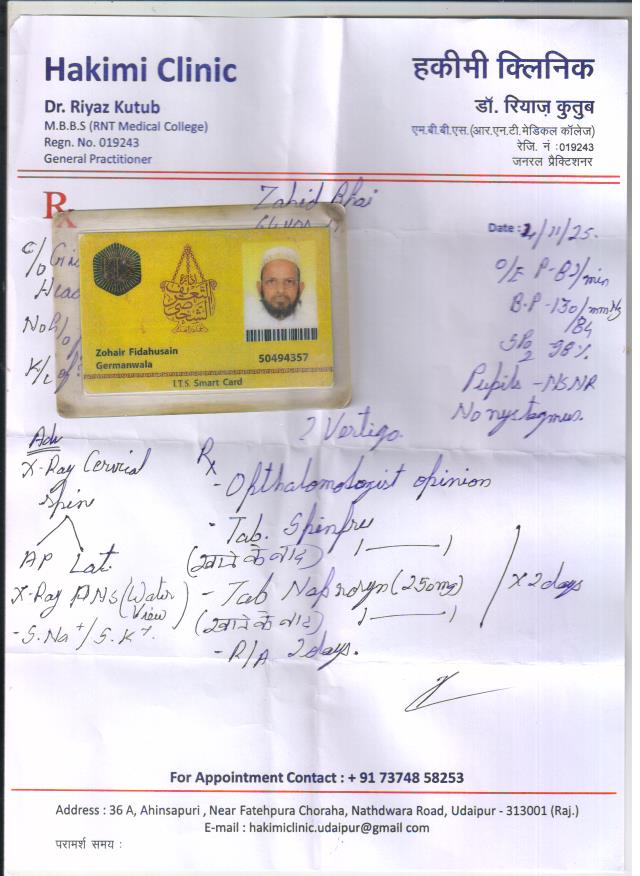 Hakimi Clinic
Dr. Riyaz Kutub
M.B.B.S (RNT Medical College)
Regn. No. 019243
General Practitioner
हकीमी क्लिनिक
डॉ. रियाज़ कुतुब
एम.बी.बी.एस.(आर.एन.टी.मेडिकल कॉलेज)
रेजि. नं :019243
जनरल प्रैक्टिशनर
Rx
Zahid Bhai
Date : 4/11/25.
C/O
Head
No H/o
K/c of
O/E P-82/min
B.P-130/84 mmHg
SPO2 98%
Pupils -NSNR
No nystagmus.
Zohair Fidahusain
Germanwala
50494357
I.T.S. Smart Card
? Vertigo.
Adv
X-Ray Cervical
Spine
AP Lat.
X-Ray PNS (Water View)
- S.Na+/S.K+.
Rx
- Opthalomologist opinion
- Tab. Spinfree
(खाने के बाद) 1——1
- Tab Naproxyn (250mg)
(खाने के बाद) 1——1
x 2 days
- R/A 2 days.
For Appointment Contact : + 91 73748 58253
Address : 36 A, Ahinsapuri , Near Fatehpura Choraha, Nathdwara Road, Udaipur - 313001 (Raj.)
E-mail : hakimiclinic.udaipur@gmail.com
परामर्श समय :